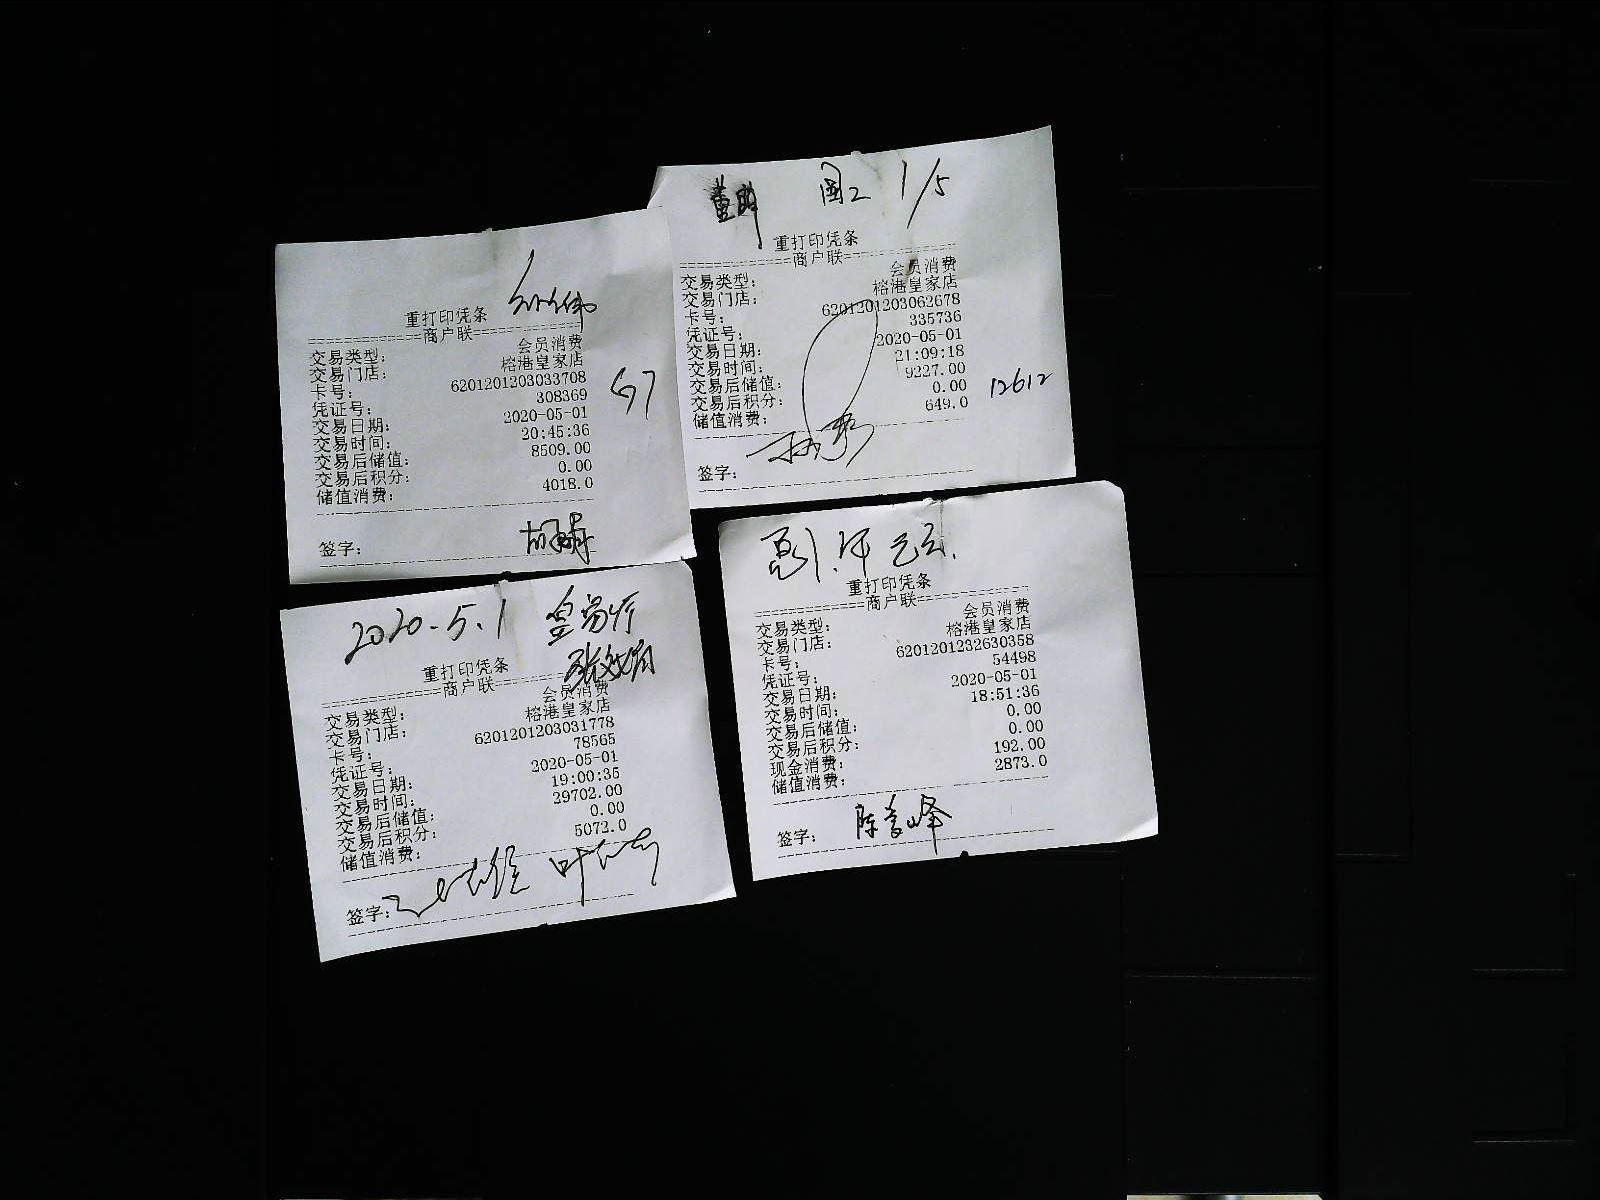 重打印凭条
商户联
交易类型： 会员消费
交易门店： 榕港皇家店
卡号： 6201201203033708
凭证号： 308369
交易日期： 2020-05-01
交易时间： 20:45:36
交易后储值： 8509.00
交易后积分： 0.00
储值消费： 4018.0
签字：
1/5
重打印凭条
商户联
交易类型： 会员消费
交易门店： 榕港皇家店
卡号： 6201201203062678
凭证号： 335736
交易日期： 2020-05-01
交易时间： 21:09:18
交易后储值： 9227.00
交易后积分： 0.00
储值消费： 649.0
12612
签字：
2020.5.1
重打印凭条
商户联
交易类型： 会员消费
交易门店： 榕港皇家店
卡号： 6201201203031778
凭证号： 78565
交易日期： 2020-05-01
交易时间： 19:00:35
交易后储值： 29702.00
交易后积分： 0.00
储值消费： 5072.0
签字：
重打印凭条
商户联
交易类型： 会员消费
交易门店： 榕港皇家店
卡号： 6201201232630358
凭证号： 54498
交易日期： 2020-05-01
交易时间： 18:51:36
交易后储值： 0.00
交易后积分： 0.00
现金消费： 192.00
储值消费： 2873.0
签字：